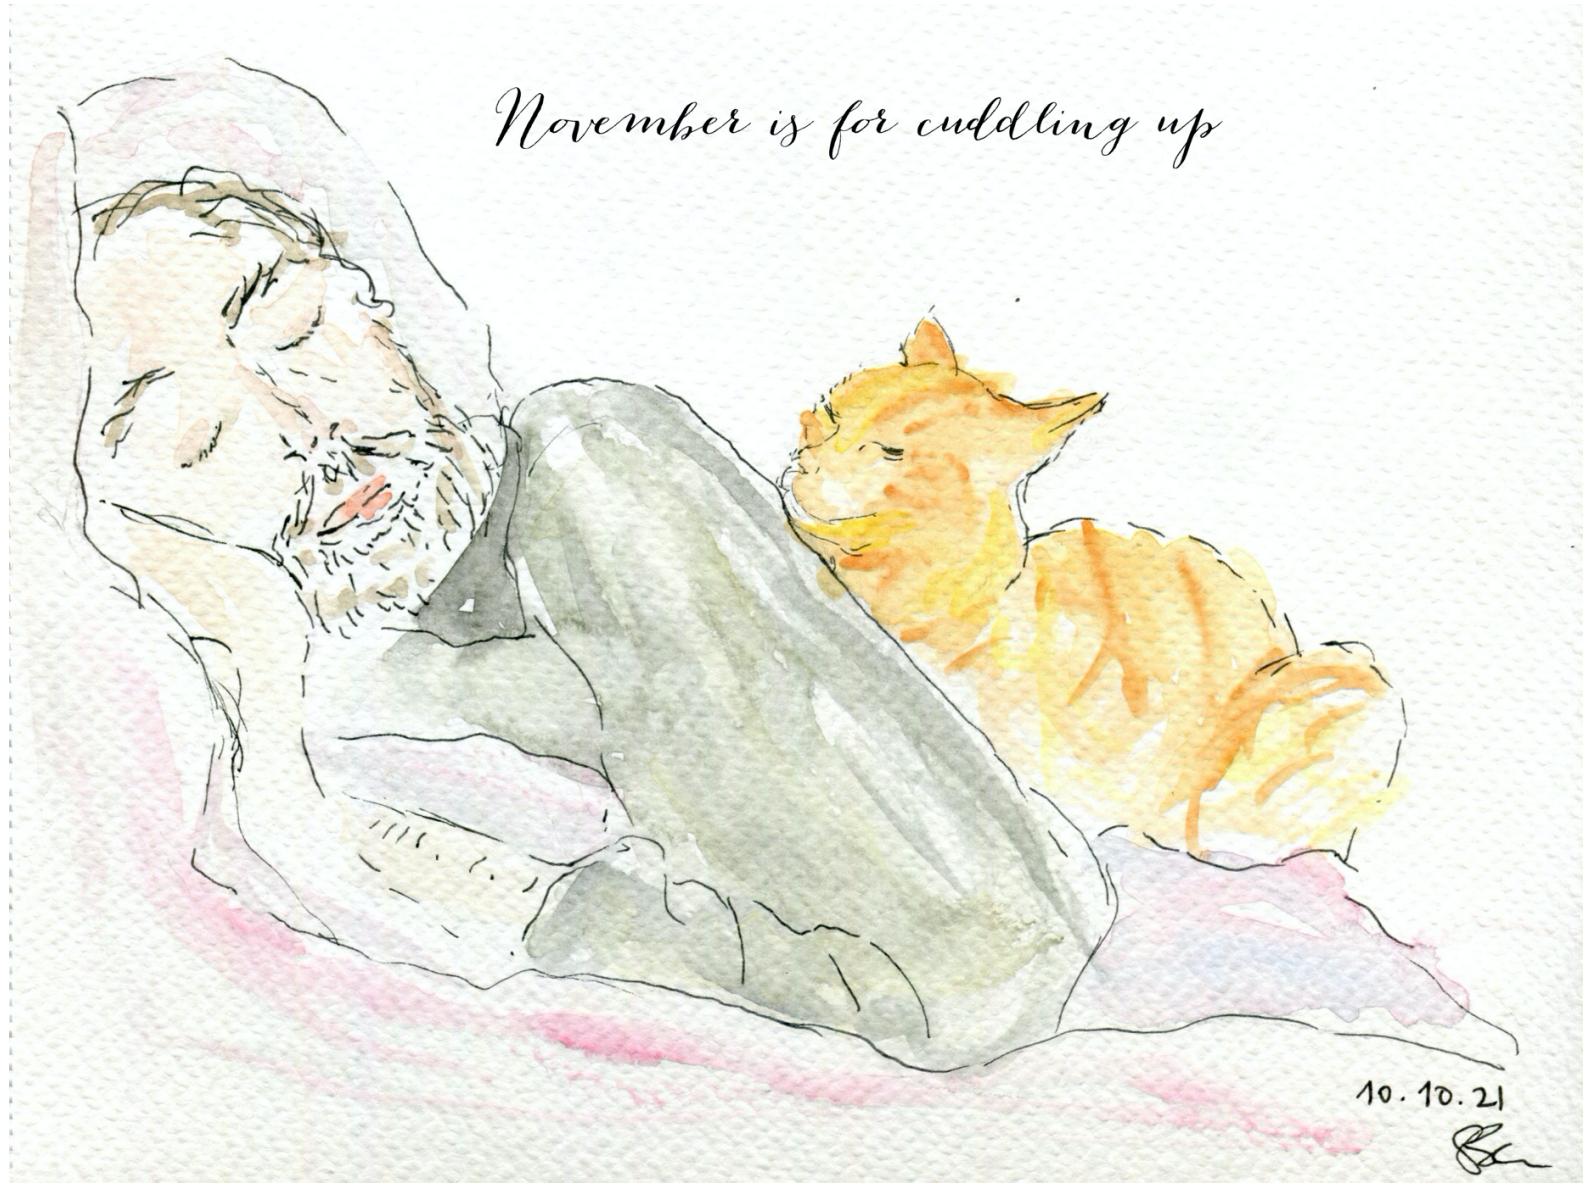 November is for cuddling up
10.10.21